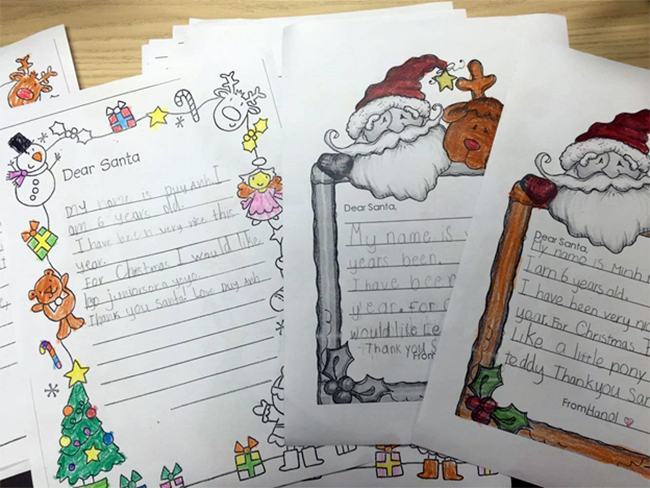 Dear Santa
my name is Duy Anh I
am 6 years old.
I have been very nice this
year.
For Christmas I would like.
lego juniors or a yoyo.
Thank you santa! Love Duy Anh
Dear Santa,
My name is
years been.
I have been
year. For
would like Le
Thank you S
From
Dear Santa,
My name is Minh
I am 6 years old.
I have been very ni
year. For Christmas I
Like a little pony
teddy Thankyou San
From Hanoi